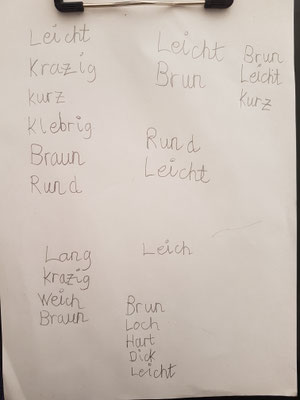 Leicht
Krazig
kurz
Klebrig
Braun
Rund
Leicht
Brun
Brun
Leicht
Kurz
Rund
Leicht
Lang
Krazig
Weich
Braun
Leich
Brun
Loch
Hart
Dick
Leicht